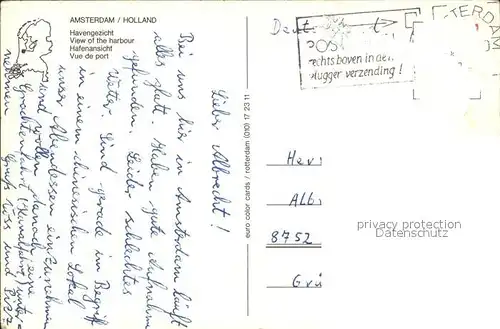 AMSTERDAM / HOLLAND
Havengezicht
View of the harbour
Hafenansicht
Vue de port
Lieber Albrecht!
Bei uns hier in Amsterdam läuft
alles glatt. Haben gute Aufnahme
gefunden. Leider schlechtes
Wetter. Sind gerade im Begriff
in einem chinesischen Lokal
unser Abendessen einzunehmen
und wollen danach eine
Grachtenfahrt
nehmen
Gruß Kuss und
euro color cards / rotterdam (010) 17 23 11
Deut
POS
rechts boven in de
vlugger verzending!
TERDAM
Her
Alb
8752
Grü
privacy protection
watermark